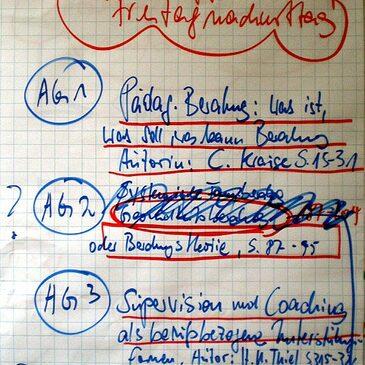 Freitagnachmittag
AG 1
Pädag. Beratung: was ist,
was soll, was kann Beratung
Autorin: C. Krause S. 15-31
? AG 2
oder Beratungstheorie, S. 87-95
AG 3
Supervision und Coaching
als berufsbezogene Unterstützungs
formen, Autor: H. M. Thiel S 315-32